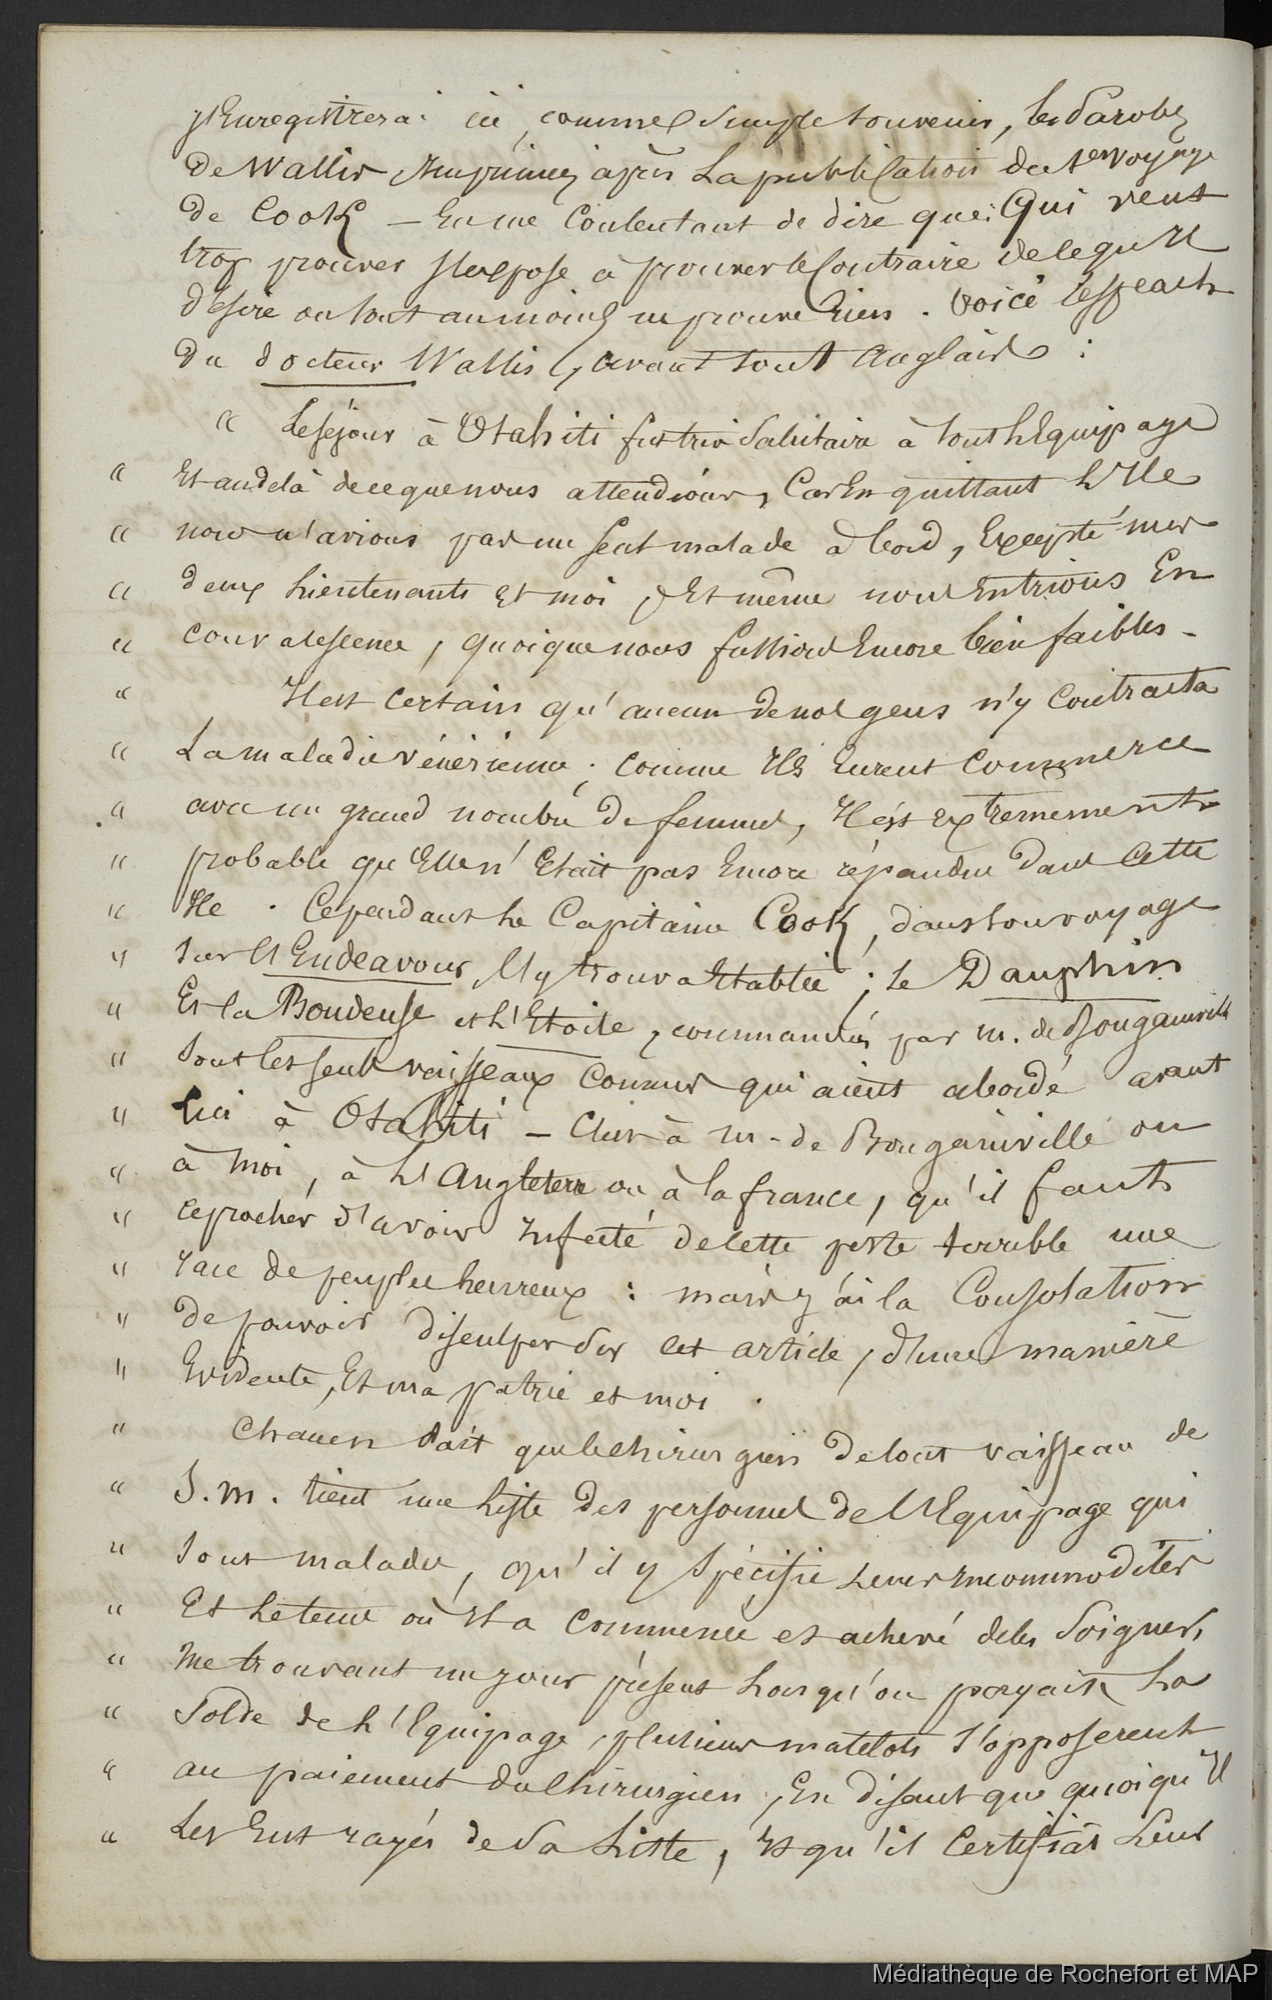 j'Enregistrerai ici, comme simple souvenir, les Paroles
de Wallis Imprimées après La publication du 1er voyage
de Cook — En me Contentant de dire que: Qui veut
trop prouver s'expose à prouver le Contraire de ce qu'Il
désire ou tout au moins ne prouve Rien. Voici le speach
du docteur Wallis, avant tout Anglais :
" Le séjour à Otahiti fut très Salutaire à tout l'Equipage
" Et au delà de ce que nous attendions, Car En quittant L'Ile
" nous n'avions pas un seul malade à bord, Excepté mes
" deux Lieutenants Et moi, Et même nous Entrions En
" convalescence, quoique nous fussions Encore bien faibles -
" Il est certain qu'aucun de nos gens n'y Contracta
" La maladie vénérienne; comme Ils Eurent Commerce
" avec un grand nombre de femmes, Il est extremement
" probable qu'Elle n'Etait pas Encore répandue dans Cette
" Ile . Cependant Le Capitaine Cook, dans son voyage
" sur l'Endeavour, l'y trouva Etablie; Le Dauphin
" Et la Boudeuse et L'Etoile, commandés par m. de Bougainville
" sont les seuls vaisseaux Connus qui aient abordé avant
" Lui à Otahiti — C'est à m. de Bougainville ou
" à moi, à L'Angleterre ou à la france, qu'il faut
" reprocher d'avoir Infecté de cette peste terrible une
" race de peuples heureux : mais j'ai la Consolation
" de pouvoir disculper sur cet article, d'une manière
" Evidente, Et ma patrie et moi .
" Chacun sait que le chirurgien de tout vaisseau de
" S. m. tient une Liste des personnes de l'Equipage qui
" sont malades, qu'il y spécifie Leurs Incommodités
" Et Le tems où Il a commencé et achevé de les Soigner,
" Me trouvant un jour présent Lorsqu'on payait La
" Solde de L'Equipage, plusieurs matelots s'opposerent
" au paiement du Chirurgien, En disant que quoiqu'Il
" Les Eut rayés de Sa Liste, Et qu'il Certifiât Leur
Médiathèque de Rochefort et MAP